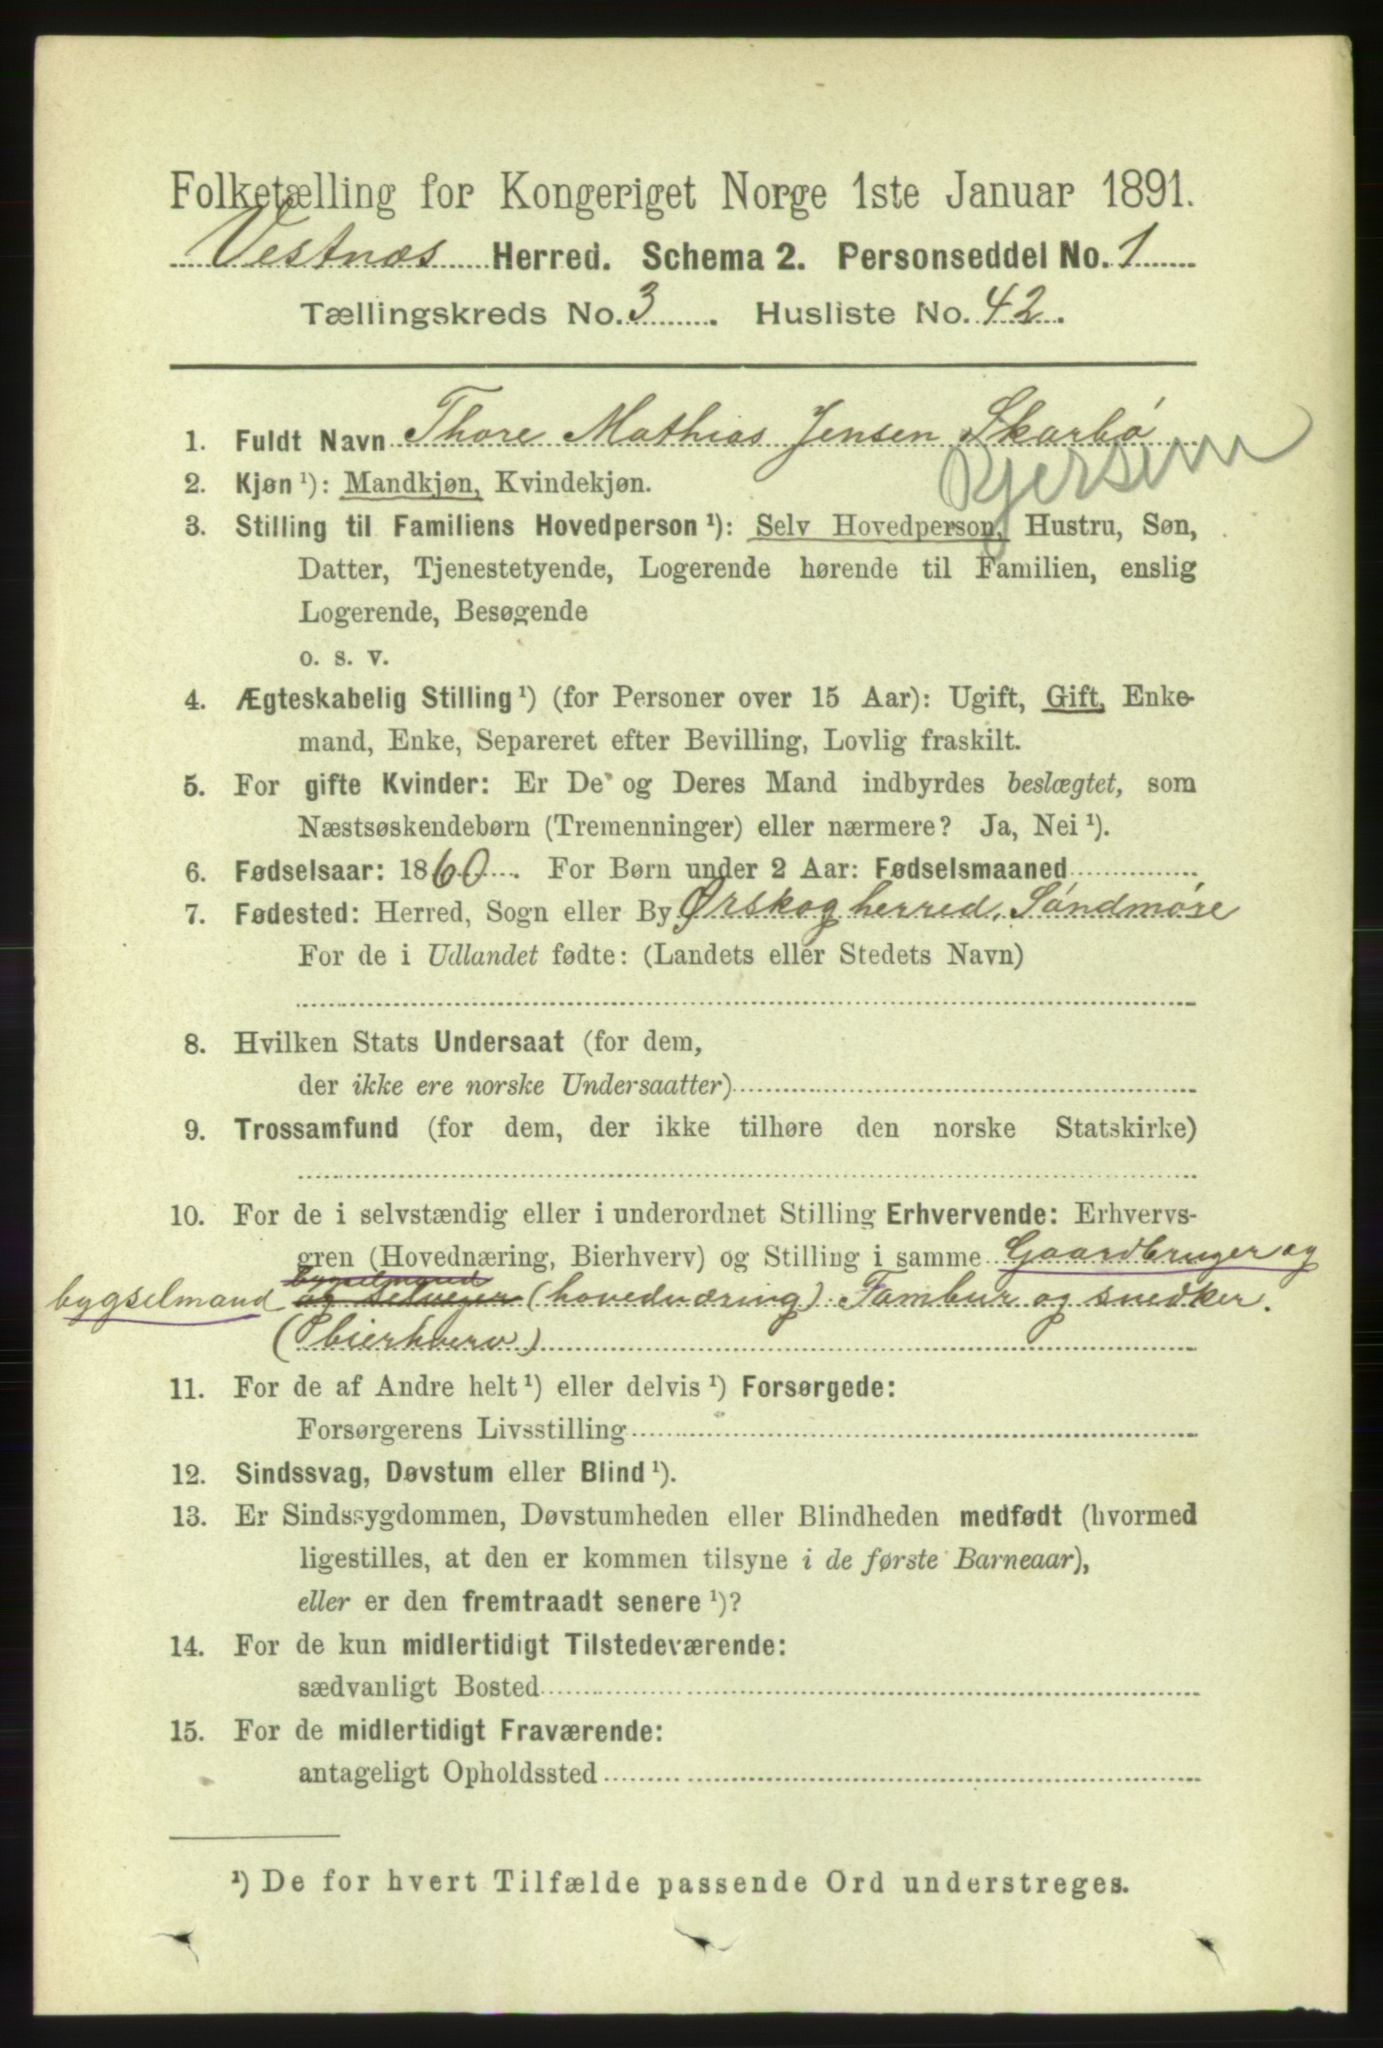 Folketælling for Kongeriget Norge 1ste Januar 1891.
Vestnæs Herred. Schema 2. Personseddel No. 1
Tællingskreds No. 3. Husliste No. 42.
1. Fuldt Navn Thore Mathias Jensen Skarbø
2. Kjøn ¹): Mandkjøn, Kvindekjøn.
3. Stilling til Familiens Hovedperson ¹): Selv Hovedperson, Hustru, Søn,
Datter, Tjenestetyende, Logerende hørende til Familien, enslig
Logerende, Besøgende
o. s. v.
4. Ægteskabelig Stilling ¹) (for Personer over 15 Aar): Ugift, Gift, Enke-
mand, Enke, Separeret efter Bevilling, Lovlig fraskilt.
5. For gifte Kvinder: Er De og Deres Mand indbyrdes beslægtet, som
Næstsøskendebørn (Tremenninger) eller nærmere? Ja, Nei ¹).
6. Fødselsaar: 1860. For Børn under 2 Aar: Fødselsmaaned
7. Fødested: Herred, Sogn eller By Ørskog herred, Søndmøre
For de i Udlandet fødte: (Landets eller Stedets Navn)
8. Hvilken Stats Undersaat (for dem,
der ikke ere norske Undersaatter)
9. Trossamfund (for dem, der ikke tilhøre den norske Statskirke)
10. For de i selvstændig eller i underordnet Stilling Erhvervende: Erhvervs-
gren (Hovednæring, Bierhverv) og Stilling i samme Gaardbruger og
bygselmand
bygselmand og selveier (hovednæring) Tømbur og snedker.
(bierhverv)
11. For de af Andre helt ¹) eller delvis ¹) Forsørgede:
Forsørgerens Livsstilling
12. Sindssvag, Døvstum eller Blind ¹).
13. Er Sindssygdommen, Døvstumheden eller Blindheden medfødt (hvormed
ligestilles, at den er kommen tilsyne i de første Barneaar),
eller er den fremtraadt senere ¹)?
14. For de kun midlertidigt Tilstedeværende:
sædvanligt Bosted
15. For de midlertidigt Fraværende:
antageligt Opholdssted
¹) De for hvert Tilfælde passende Ord understreges.